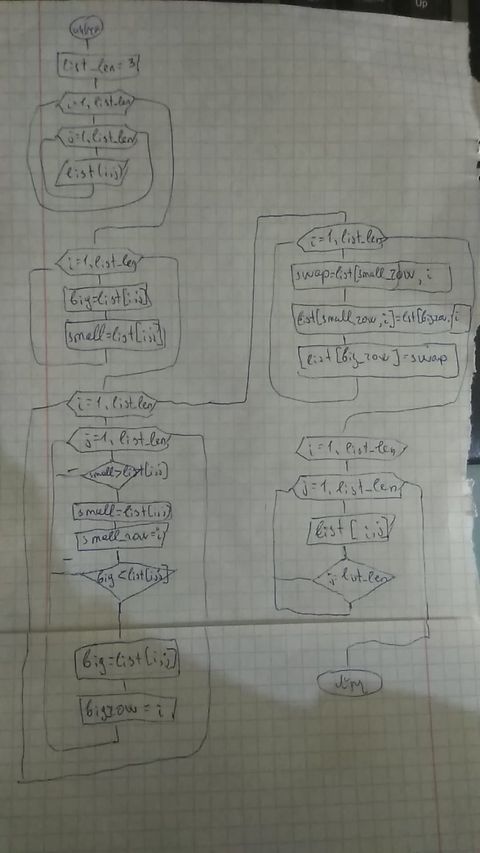 list_len = 3
i=1, list_len
j=1, list_len
list[i,j]
i=1, list_len
big=list[i,j]
small=list[i,j]
i=1, list_len
j=1, list_len
small>list[i,j]
small=list[i,j]
small_row=i
big<list[i,j]
big=list[i,j]
bigrow = i
i=1, list_len
swap=list[small_row, i
list[small_row,i]=list[bigrow, i
list[big_row]=swap
i=1, list_len
j=1, list_len
list[i,j]
Up